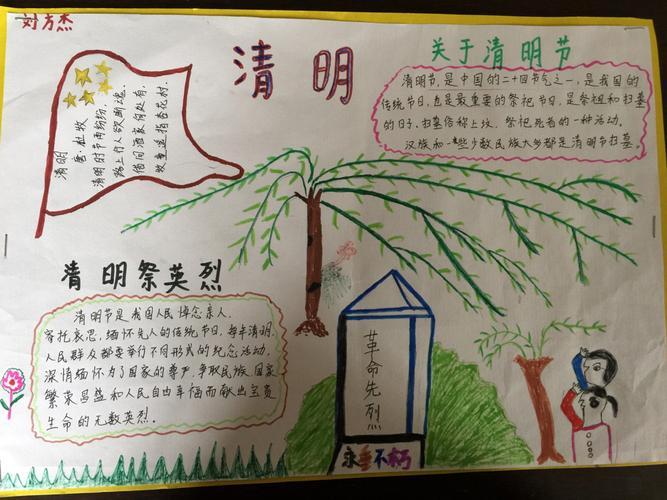 刘方杰
清明
清明
唐·杜牧
清明时节雨纷纷，
路上行人欲断魂。
借问酒家何处有，
牧童遥指杏花村。
关于清明节
清明节，是中国的二十四节气之一，是我国的
传统节日，也是最重要的祭祀节日，是祭祖和扫墓
的日子。扫墓俗称上坟，祭祀死者的一种活动。
汉族和一些少数民族大多都是清明节扫墓。
清明祭英烈
清明节是我国人民悼念亲人、
寄托哀思，缅怀先人的传统节日，每年清明，
人民群众都要举行不同形式的纪念活动，
深情缅怀为了国家的尊严，争取民族、国家
繁荣昌盛和人民自由幸福而献出宝贵
生命的无数英烈。
革命先烈
永垂不朽